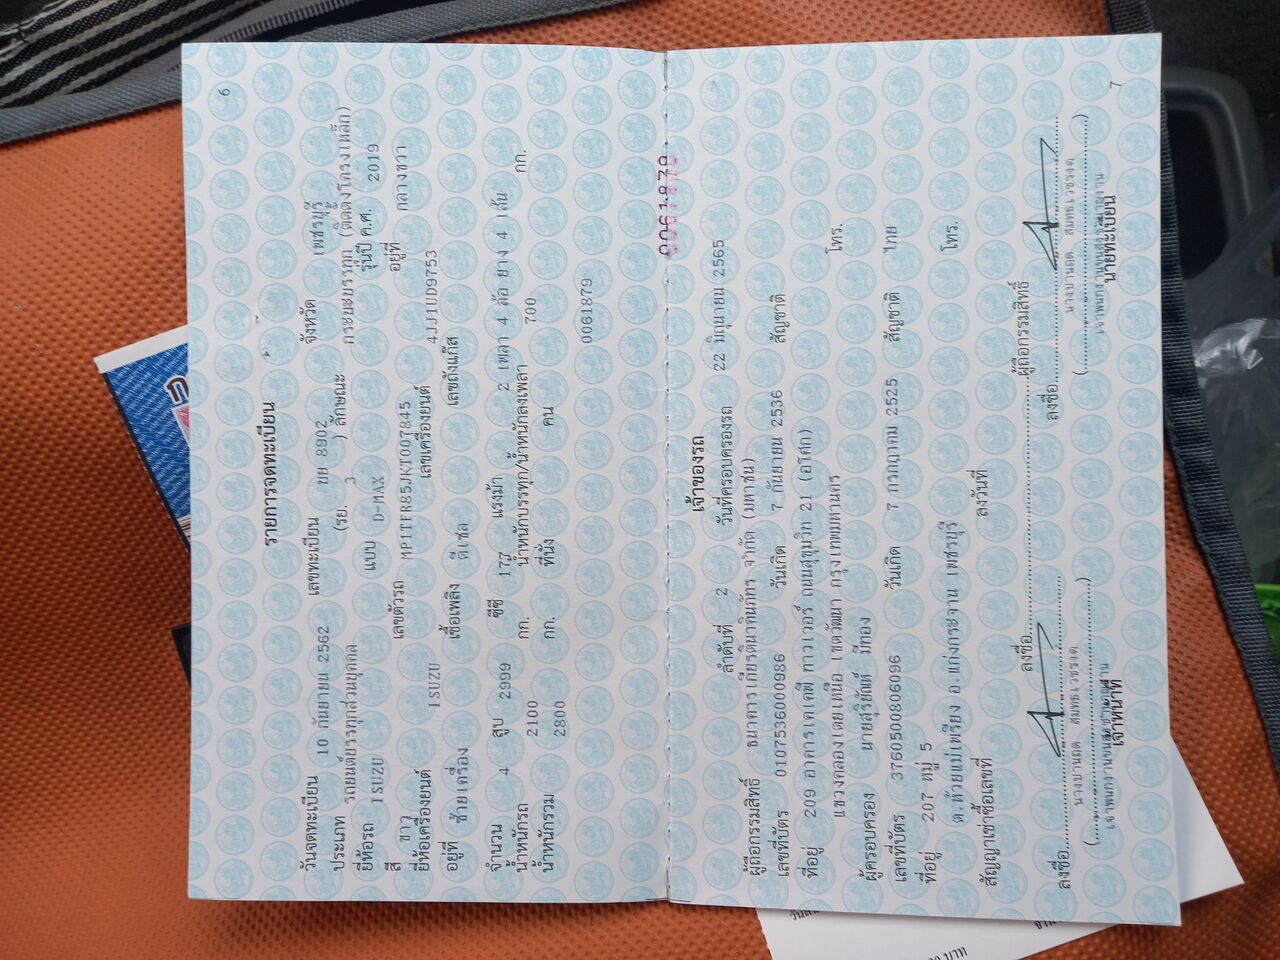 6
รายการจดทะเบียน
วันจดทะเบียน 10 กันยายน 2562 เลขทะเบียน ยย 8902 จังหวัด เพชรบุรี
ประเภท รถยนต์บรรทุกส่วนบุคคล (รย. 3 ) ลักษณะ กระบะบรรทุก (ติดตั้งโครงเหล็ก)
ยี่ห้อรถ ISUZU แบบ D-MAX รุ่นปี ค.ศ. 2019
สี ขาว เลขตัวรถ MP1TFR85JKT007845 อยู่ที่ กลางขวา
ยี่ห้อเครื่องยนต์ ISUZU เลขเครื่องยนต์ 4JJ1UD9753
อยู่ที่ ซ้ายเครื่อง เชื้อเพลิง ดีเซล เลขถังแก๊ส
จำนวน 4 สูบ 2999 ซีซี 177 แรงม้า 2 เพลา 4 ล้อ ยาง 4 เส้น
น้ำหนักรถ 2100 กก. น้ำหนักบรรทุก/น้ำหนักลงเพลา 700 กก.
น้ำหนักรวม 2800 กก. ที่นั่ง คน
0061879
0061879
7
เจ้าของรถ
ลำดับที่ 2 วันที่ครอบครองรถ 22 มิถุนายน 2565
ผู้ถือกรรมสิทธิ์ ธนาคารเกียรตินาคินภัทร จำกัด (มหาชน)
เลขที่บัตร 0107536000986 วันเกิด 7 กันยายน 2536 สัญชาติ
ที่อยู่ 209 อาคารเคเคพี ทาวเวอร์ ถนนสุขุมวิท 21 (อโศก)
แขวงคลองเตยเหนือ เขตวัฒนา กรุงเทพมหานคร โทร.
ผู้ครอบครอง นายสุริยัณห์ มีทอง
เลขที่บัตร 3760500806096 วันเกิด 7 กรกฎาคม 2525 สัญชาติ ไทย
ที่อยู่ 207 หมู่ 5
ต.ห้วยแม่เพรียง อ.แก่งกระจาน เพชรบุรี โทร.
สัญญาเช่าซื้อเลขที่ ลงวันที่
ลงชื่อ ผู้ถือกรรมสิทธิ์
ลงชื่อ ลงชื่อ
เจ้าหน้าที่ นายทะเบียน
บาท